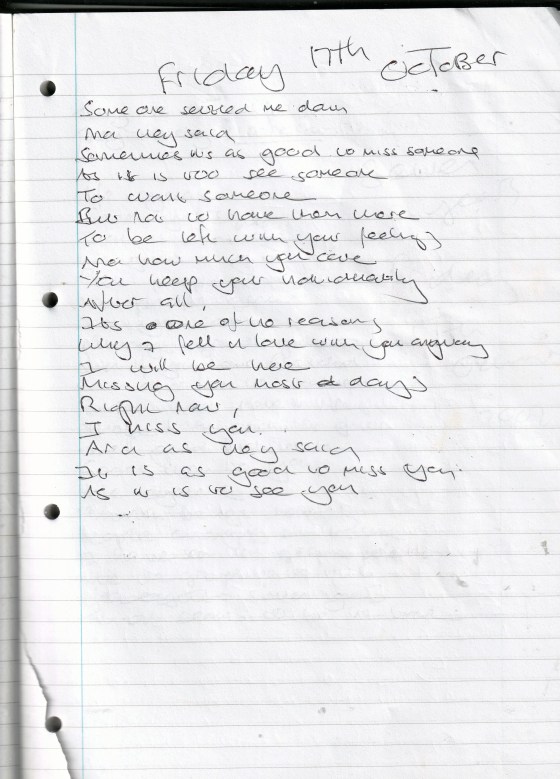 Friday 17th OCTOBER
Someone settled me down
And they said
Sometimes its as good to miss someone
As it is too see someone
To want someone
But not to have them there
To be left with your feelings
And how much you care
You keep your individuality
After all,
Its one of the reasons
Why I fell in love with you anyway
I will be here
Missing you most days
Right now,
I miss you.
And as they said
It is as good to miss you.
As it is to see you